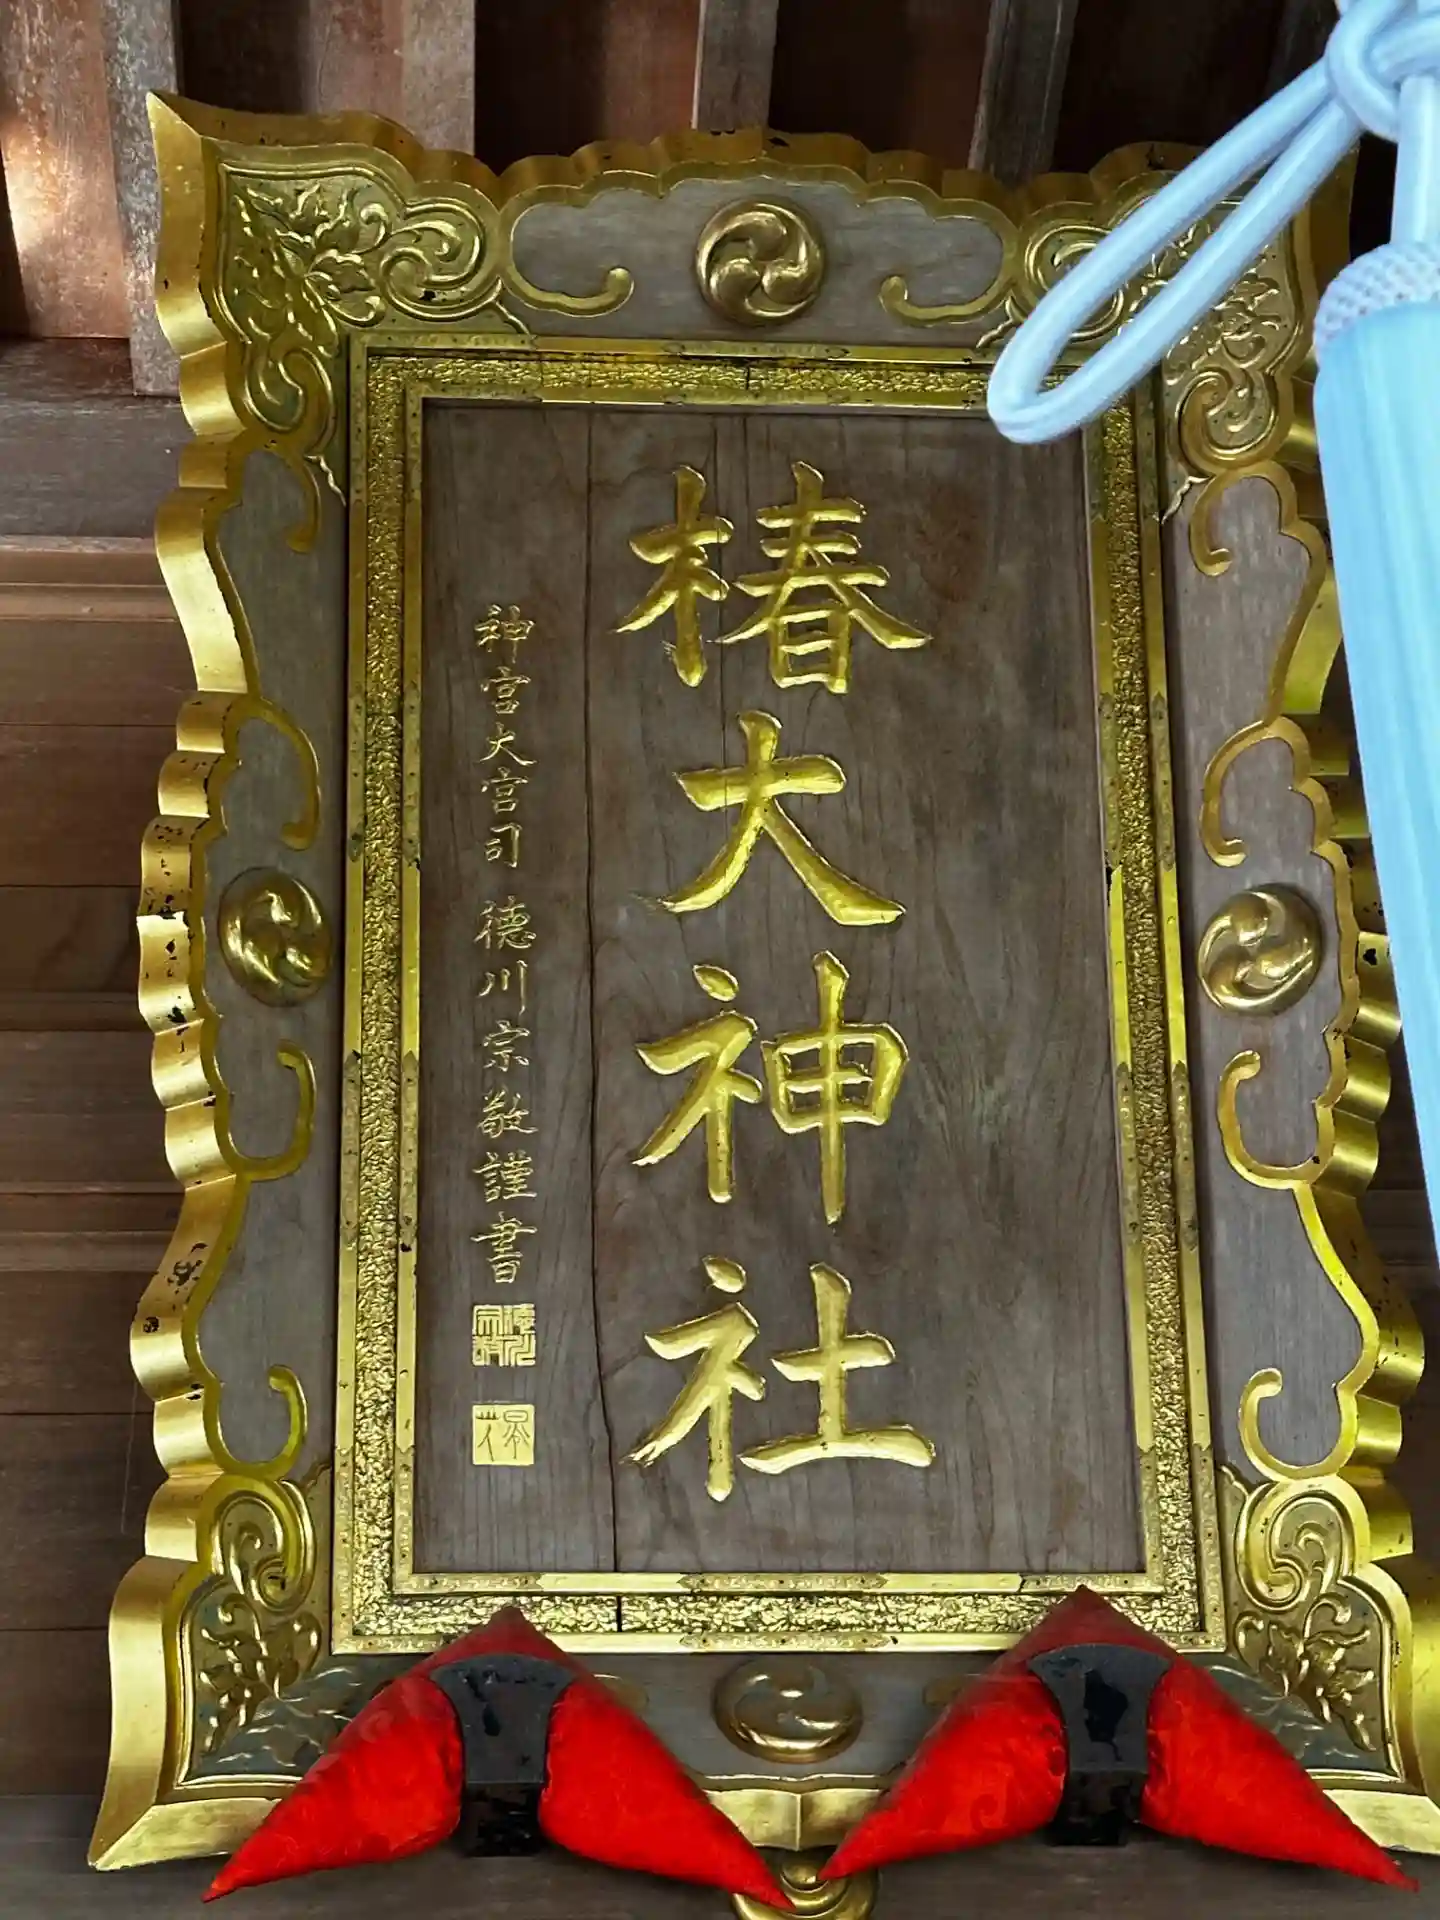 椿大神社
神宮大宮司 徳川宗敬謹書